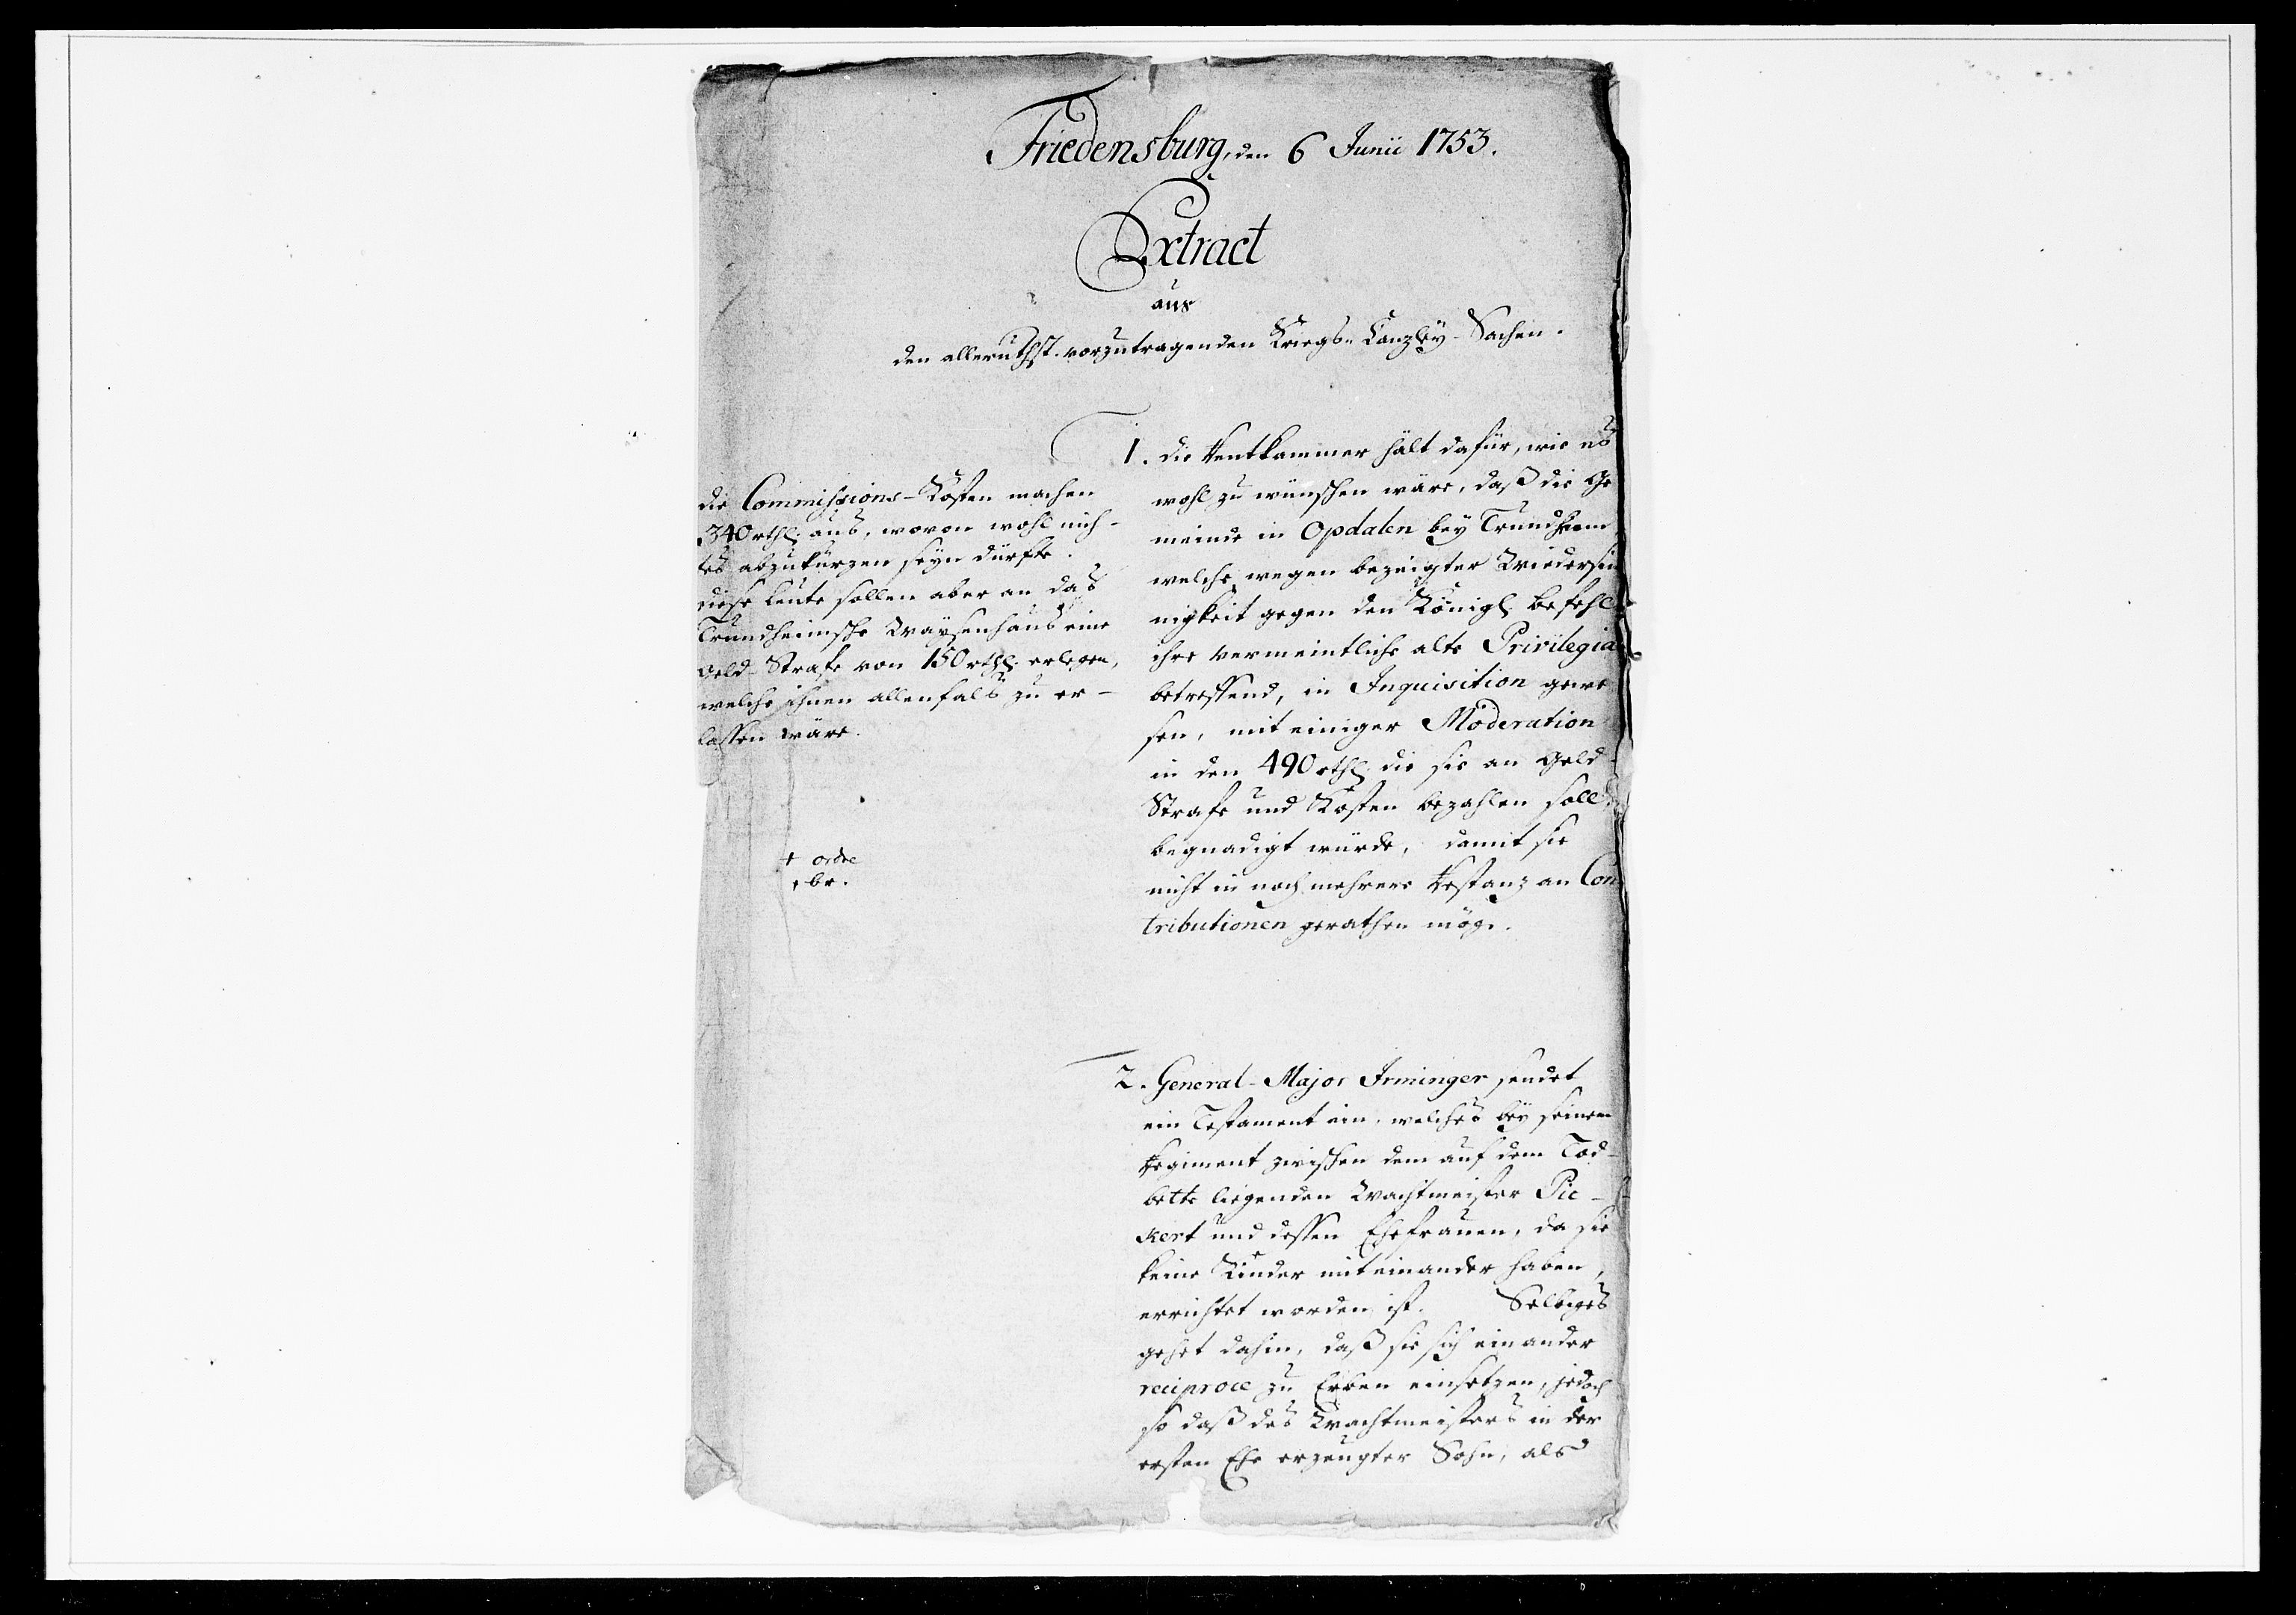 Friedensburg, den 6 Junii 1753.
Extract
aus
den allerunthst. vorzutragenden Kriegs-Canzley-Sachen.
1. die Rentkammer hält dafür, wie es
wohl zu wünschen wäre, daß die Ge
meinde in Opdalen bey Trundheim
welche wegen bezeigter Wiedersin
nigkeit gegen den Königl. Befehl
ihre vermeintliche alte Privilegia
betreffend, in Inquisition gewe
sen, mit einiger Moderation
in den 490 rthl. die sie an Geld-
Strafe und Kosten bezahlen soll
begnadigt würde, damit sie
nicht in noch mehrere Restanz an Con
tributionen gerathen möge.
die Commissions-Kosten machen
340 rthl. aus, wovon wohl nich-
tes abzukürzen seyn dürfte.
diese Leute sollen aber an das
Trundheimsche Waysenhaus eine
Geld-Strafe von 150 rthl. erlegen,
welche ihnen allenfals zu er-
lassen wäre.
+ ordre
+ br.
2. General-Major Irminger sendet
ein Testament ein, welches bey seinem
Regiment zwischen dem auf dem Tod-
bette liegenden Wachtmeister Pic-
kert und dessen Ehefrauen, da sie
keine Kinder miteinander haben,
errichtet worden ist. Selbiges
gehet dahin, daß sie sich einander
reciproce zu Erben einsetzen, jedoch
so daß des Wachtmeisters in der
ersten Ehe erzeugter Sohn, als